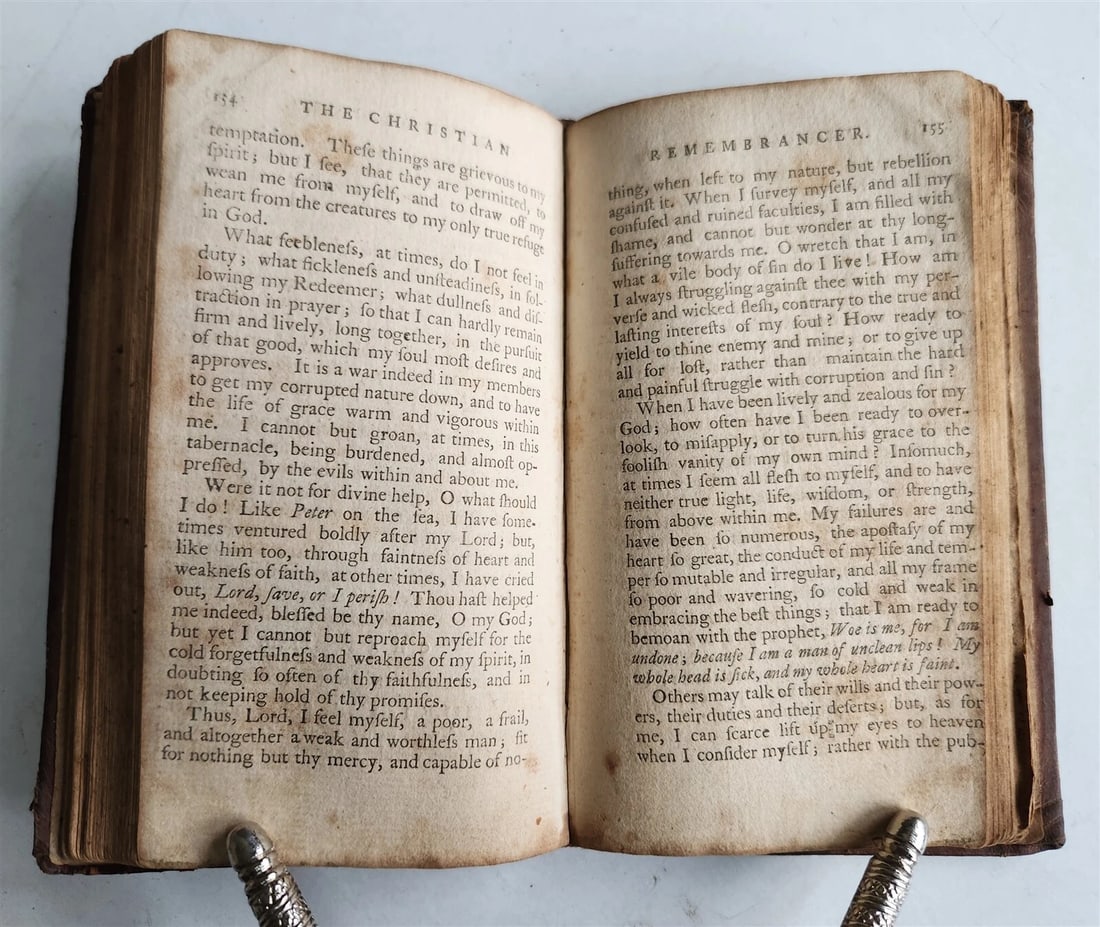 154 THE CHRISTIAN
temptation. Theſe things are grievous to my
ſpirit; but I ſee, that they are permitted, to
wean me from myſelf, and to draw off my
heart from the creatures to my only true refuge
in God.
What feebleneſs, at times, do I not feel in
duty; what fickleneſs and unſteadineſs, in fol-
lowing my Redeemer; what dullneſs and diſ-
traction in prayer; ſo that I can hardly remain
firm and lively, long together, in the purſuit
of that good, which my ſoul moſt deſires and
approves. It is a war indeed in my members
to get my corrupted nature down, and to have
the life of grace warm and vigorous within
me. I cannot but groan, at times, in this
tabernacle, being burdened, and almoſt op-
preſſed, by the evils within and about me.
Were it not for divine help, O what ſhould
I do! Like Peter on the ſea, I have ſome-
times ventured boldly after my Lord; but,
like him too, through faintneſs of heart and
weakneſs of faith, at other times, I have cried
out, Lord, ſave, or I periſh! Thou haſt helped
me indeed, bleſſed be thy name, O my God;
but yet I cannot but reproach myſelf for the
cold forgetfulneſs and weakneſs of my ſpirit, in
doubting ſo often of thy faithfulneſs, and in
not keeping hold of thy promiſes.
Thus, Lord, I feel myſelf, a poor, a frail,
and altogether a weak and worthleſs man; fit
for nothing but thy mercy, and capable of no-
REMEMBRANCER. 155
thing, when left to my nature, but rebellion
againſt it. When I ſurvey myſelf, and all my
confuſed and ruined faculties, I am filled with
ſhame, and cannot but wonder at thy long-
ſuffering towards me. O wretch that I am, in
what a vile body of ſin do I live! How am
I always ſtruggling againſt thee with my per-
verſe and wicked fleſh, contrary to the true and
laſting intereſts of my ſoul? How ready to
yield to thine enemy and mine; or to give up
all for loſt, rather than maintain the hard
and painful ſtruggle with corruption and ſin?
When I have been lively and zealous for my
God; how often have I been ready to over-
look, to miſapply, or to turn his grace to the
fooliſh vanity of my own mind? Inſomuch,
at times I ſeem all fleſh to myſelf, and to have
neither true light, life, wiſdom, or ſtrength,
from above within me. My failures are and
have been ſo numerous, the apoſtaſy of my
heart ſo great, the conduct of my life and tem-
per ſo mutable and irregular, and all my frame
ſo poor and wavering, ſo cold and weak in
embracing the beſt things; that I am ready to
bemoan with the prophet, Woe is me, for I am
undone; becauſe I am a man of unclean lips! My
whole head is ſick, and my whole heart is faint.
Others may talk of their wills and their pow-
ers, their duties and their deſerts; but, as for
me, I can ſcarce lift up my eyes to heaven
when I conſider myſelf; rather with the pub-